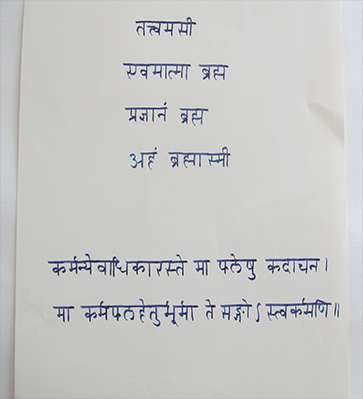 तत्त्वमसी
एवमात्मा ब्रह्म
प्रज्ञानं ब्रह्म
अहं ब्रह्मास्मी
कर्मन्येवाधिकारस्ते मा फलेषु कदाचन।
मा कर्मफलहेतुर्भूर्मा ते सङ्गोऽस्त्वकर्मणि॥